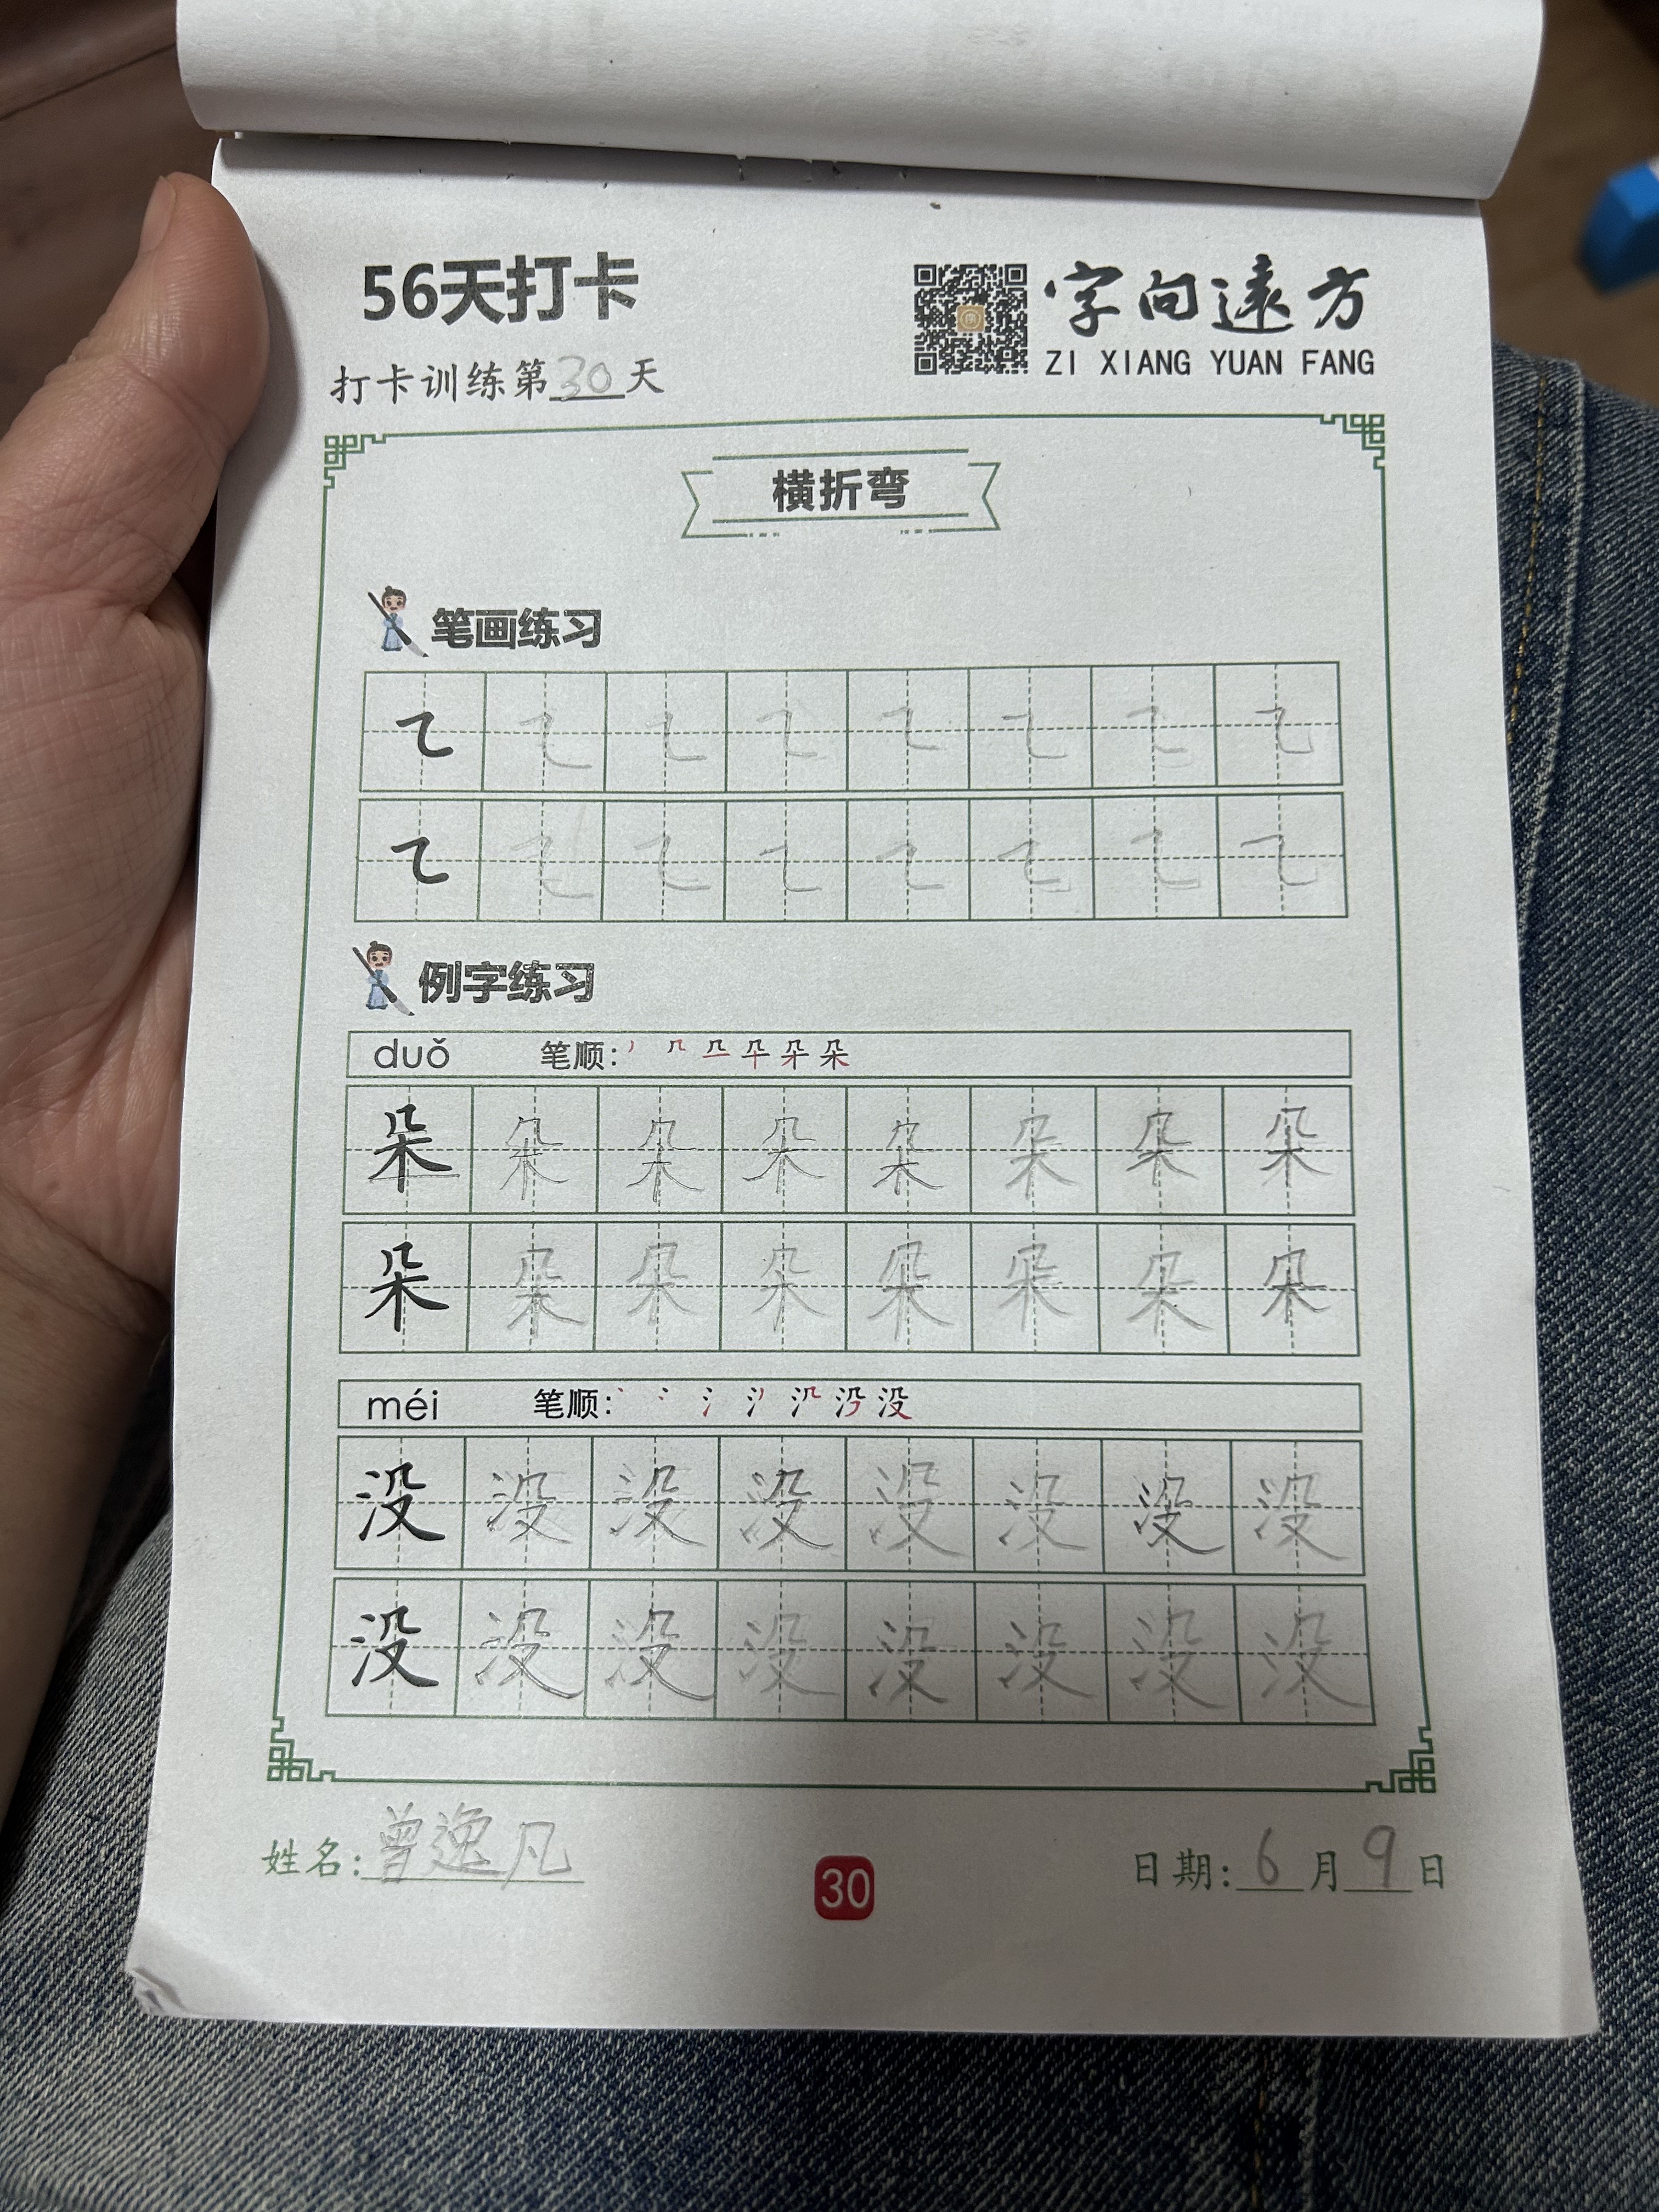 56天打卡
字向遠方
ZI XIANG YUAN FANG
打卡训练第30天
横折弯
笔画练习
㇍ ㇍ ㇍ ㇍ ㇍ ㇍ ㇍ ㇍
㇍ ㇍ ㇍ ㇍ ㇍ ㇍ ㇍ ㇍
例字练习
duǒ 笔顺: 朵
朵 朵 朵 朵 朵 朵 朵 朵
朵 朵 朵 朵 朵 朵 朵 朵
méi 笔顺: 没
没 没 没 没 没 没 没 没
没 没 没 没 没 没 没 没
姓名: 曾逸凡
30
日期: 6月9日